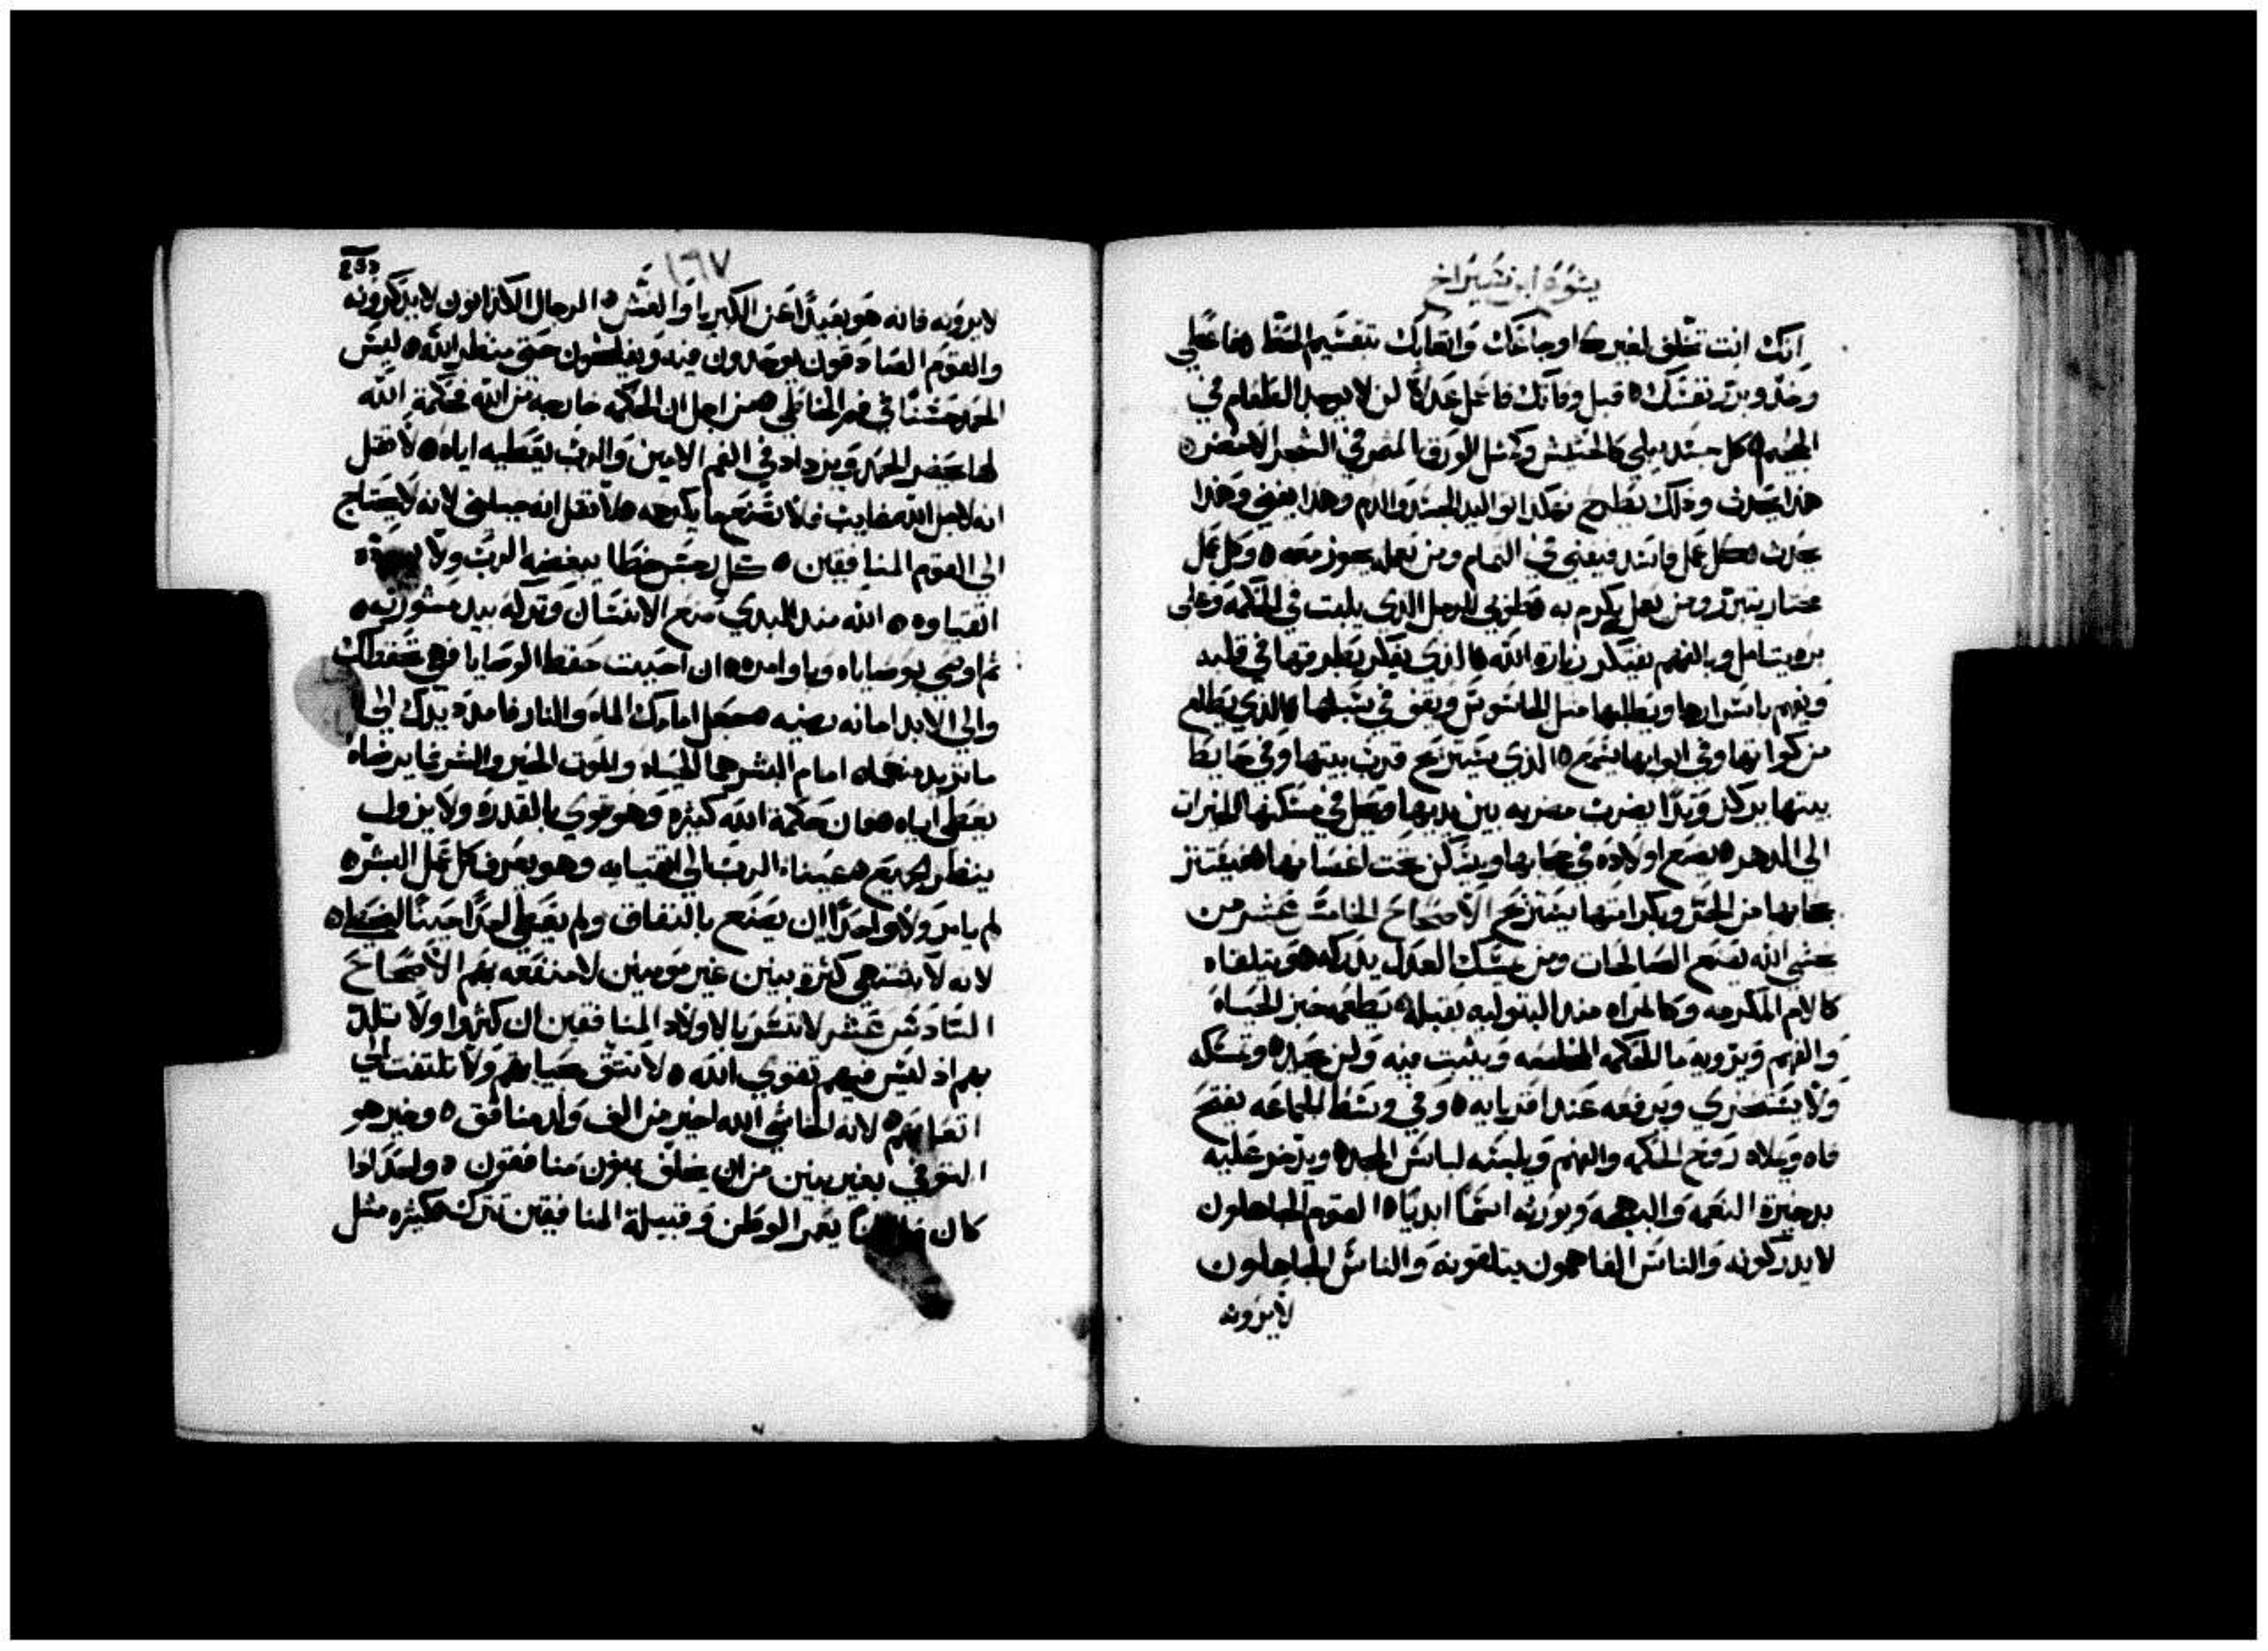 يشوع ابن شيراخ
انك انت تخلف لغيرك اوجاعك واتعابك بتقسيم الحظ ه فاعطي
وخذ وبرر نفسك ه قبل وفاتك فاعمل عدلا لن لا يوجد الطعام في
الجحيم ه كل جسد يبلي كالحشيش وكمثل الورق المثمر في الشجر الاخضر ه
هذا يحدث وذلك يطرح فهكذا تواليد الجسد والدم وهذا يفني وهذا
يحدث ه كل عمل فاسد فيفني في التمام ومن يعمله يجوز معه ه وكل عمل
مختار يتبرر ومن يعمل يكرم به ه طوبي للرجل الذي يلبث في الحكمة وعلي
بره يتامل وبالفهم يفتكر زيارة الله ه الذي يفكر بطرقها في قلبه
ويفهم باسرارها ويطلبها مثل الجاسوس ويقف في سبلها ه الذي يطلع
من كواتها وفي ابوابها يسمع ه الذي يستريح قرب بيتها وفي حايط
بيتها يركز وتدا يضرب مضربه بين يديها وتحل في مسكنها الخيرات
الي الدهر ه يضع اولاده في حجابها ويسكن تحت اغصانها ه فيستتر
بحجابها من الحر وبكرامتها يستريح الاصحاح الخامس عشر من
يخشي الله يصنع الصالحات ومن يمسك العدل يدركه ه وتتلقاه
كالام المكرمه وكالمراه منذ البتوليه تقبله ه تطعمه خبز الحياه
والفهم وترويه ما الحكمه وتثبت فيه ولن يحيد ه وتمسكه
ولا يستخزي وترفعه عند اقربايه ه وفي وسط الجماعه يفتح
فاه وتملاه روح الحكمه والفهم وتلبسه لباس المجد ه ويذخر عليه
بدخيرة النعمه والبهجه وتورثه اسما ابديا ه القوم الجاهلون
لا يدركونه والناس الفاهمون يتلقونه والناس الجاهلون
لايرونه
١٦٧
لايرونه فانه هو بعيدا عن الكبريا والغش ه الرجال الكذابون لا يذكرونه
والقوم الصادقون يوجدون فيه ويفلحون حتي منظر الله ه ليس
الحمد حسنا في فم الخاطي ه من اجل ان الحكمه خارجه من الله فحكمة الله
لها يحضر الحمد ويزداد في الفم الامين والرب يعطيه اياه ه لا تقل
انه لاجل الله غايب فلا تصنع ما يكرهه ه لا تقل انه خيلني لانه لا يحتاج
الي القوم المنافقين ه كل رجس خطا يبغضه الرب ولا
اتقياوه ه الله منذ البدي صنع الانسان وتركه بيد مشورته ه
ثم اوصي بوصاياه وباوامره ه ان احببت حفظ الوصايا فهي تحفظك
والي الابد امانه رضيه ه جعل امامك الماء والنار فامدد يدك الي
ما تريد منهما ه امام البشر هما الحياه والموت الخير والشر فما يرضاه
يعطي اياه ه فان حكمة الله كثيره وهو قوي بالقدره ولا يزول
ينظر الجميع ه عينا الرب الي اتقيايه وهو يعرف كل عمل البشر ه
لم يامر ولا واحدا ان يصنع بالنفاق ولم يعطي احدا حينا ليخطا ه
لانه لا يشتهي كثرة بنين غير مومنين لا منفعه بهم الاصحاح
السادس عشر لا تسر بالاولاد المنافقين ان كثروا ولا تلذ
بهم اذ ليس فيهم تقوي الله ه لا تثق بحياتهم ولا تلتفت الي
اتعابهم ه لانه لخاشي الله اخير من الف ولد منافق ه وخير هو
التوفي بغير بنين من ان يخلف بنون منافقون ه واحدا اذا
كان يعمر الوطن وقبيلة المنافقين تترك ه كثيره مثل